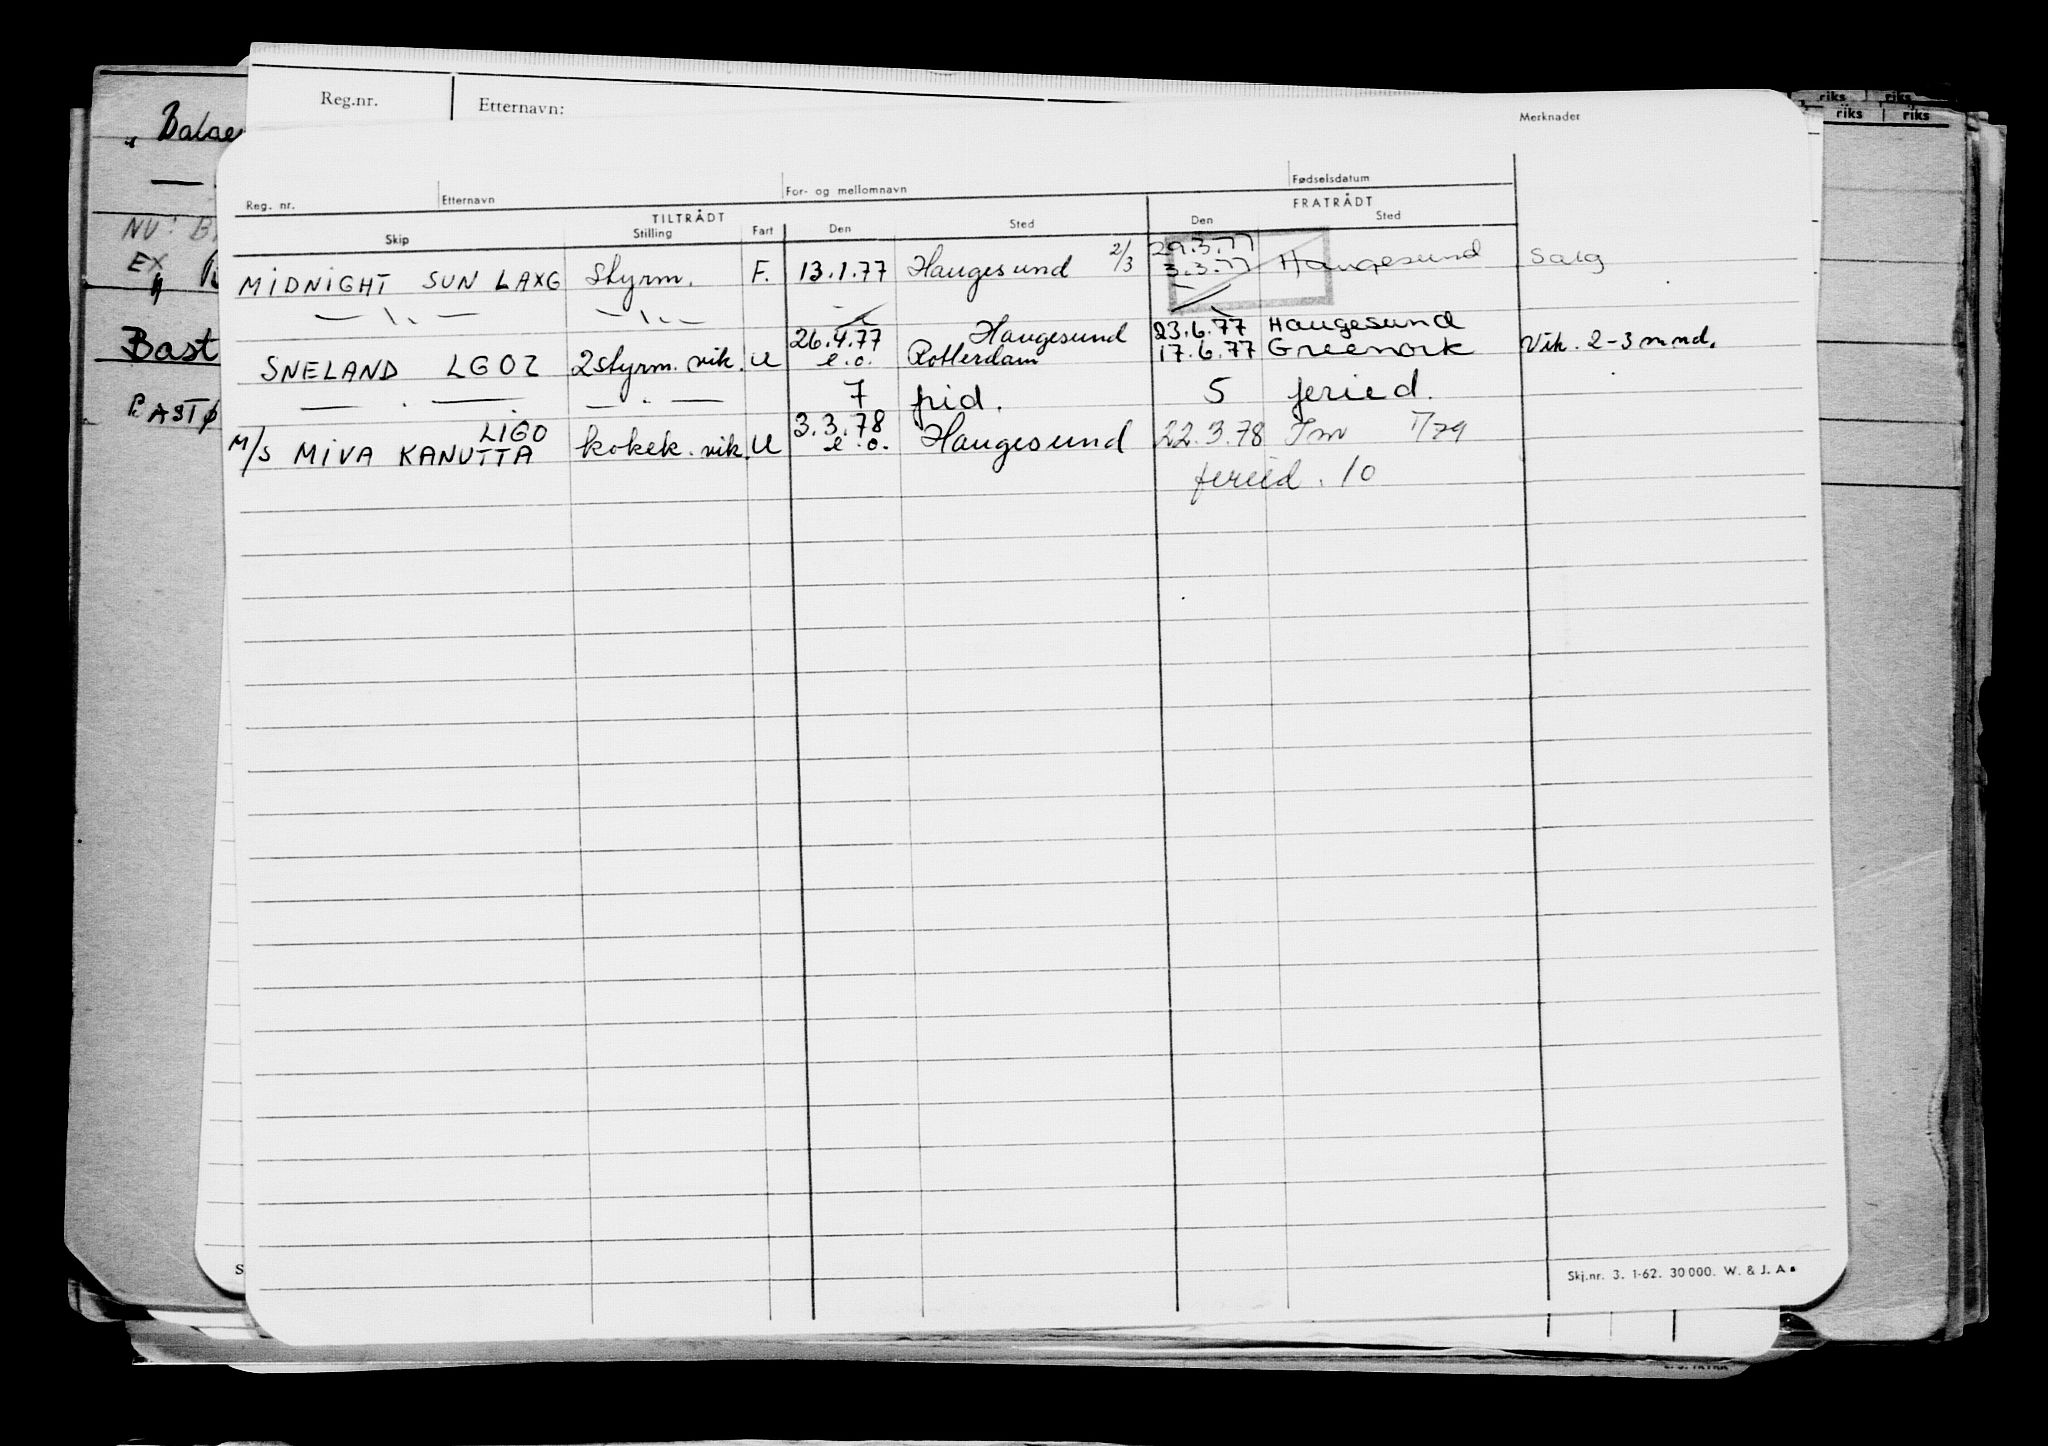 Reg.nr. Etternavn:
riks riks
riks riks
Merknader
Reg. nr. Etternavn For- og mellomnavn Fødselsdatum
TILTRÅDT FRATRÅDT
Skip Stilling Fart Den Sted Den Sted
29.3.77
MIDNIGHT SUN LAXG Styrm. F. 13.1.77 Haugesund 2/3 3.3.77 Haugesund Salg
26.4.77 Haugesund 23.6.77 Haugesund
SNELAND LGOZ 2 styrm. vik. U e.o. Rotterdam 17.6.77 Greenock Vik. 2-3 mnd.
7 frid. 5 feried.
LIGO 3.3.78
M/S MIVA KANUTTA kokek. vik. U e.o. Haugesund 22.3.78 Tm 1/79
feried. 10
Skj.nr. 3. 1-62. 30 000. W. & J. A
Balae
NU: B
EX
Bast